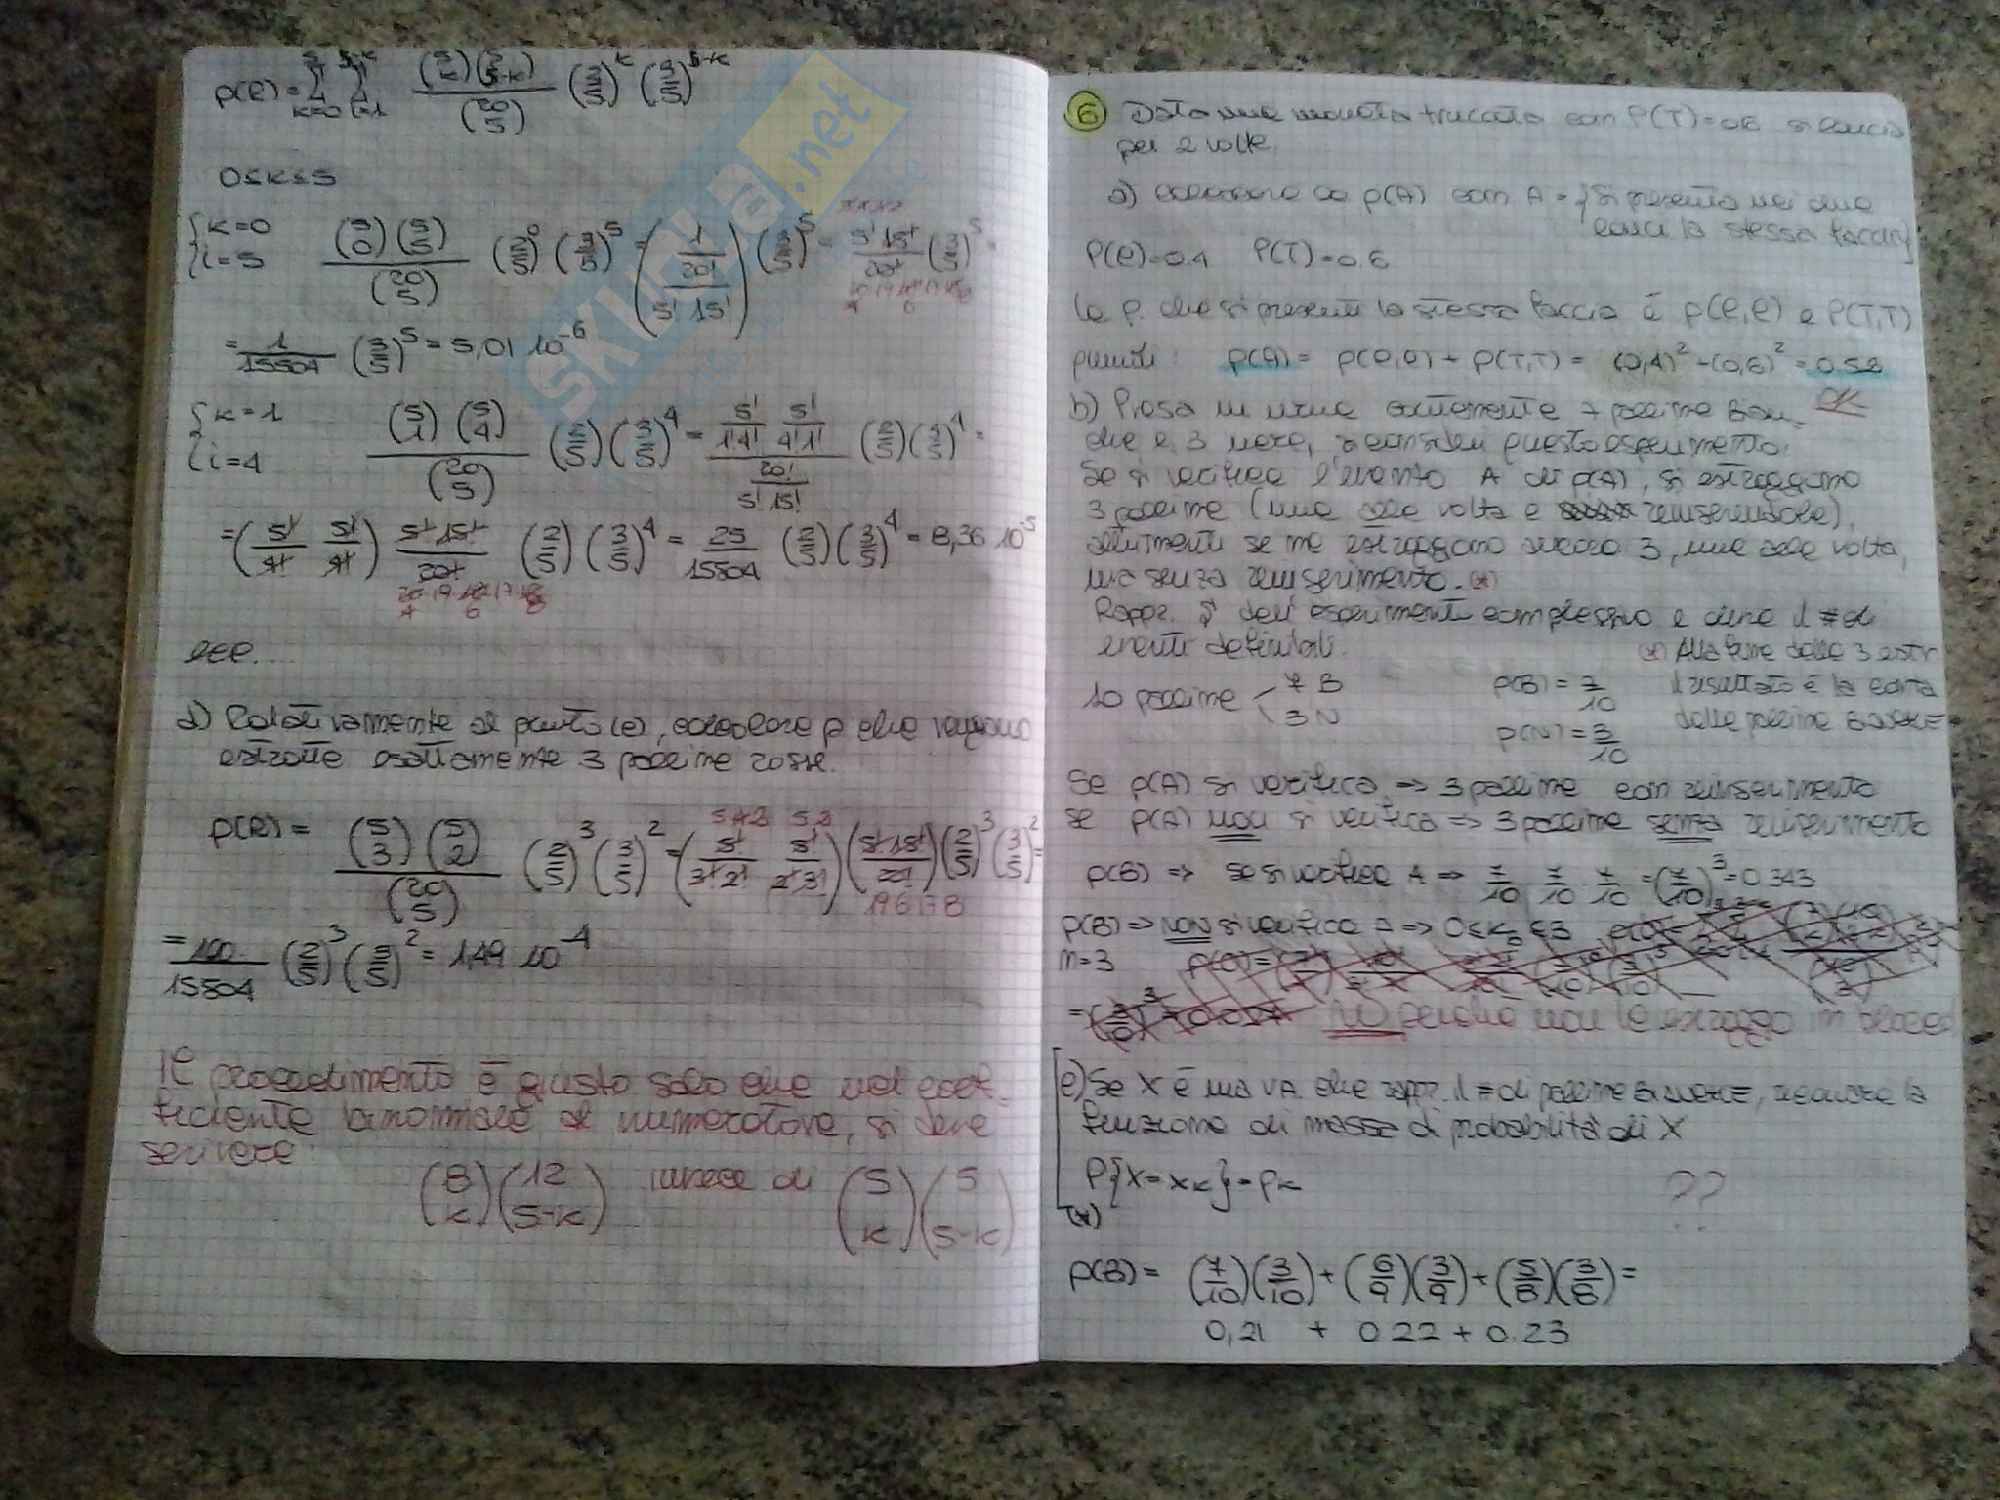 p(e) = Σ Σ (5 k)(5 5-k) / (20 5) (2/5)^k (3/5)^5-k
k=0 i=1
0≤k≤5
{ k=0
{ i=5
(5 0)(5 5) / (20 5) (2/5)^0 (3/5)^5 = (1 / (20! / 5! 15!)) (3/5)^5 = 5! 15! / 20! (3/5)^5 =
= 1/15504 (3/5)^5 = 5,01 10^-6
{ k=1
{ i=4
(5 1)(5 4) / (20 5) (2/5)(3/5)^4 = 5!/1!4! 5!/4!1! / 20!/5!15! (2/5)(3/5)^4 =
= (5!/4! 5!/4!) 5! 15!/20! (2/5)(3/5)^4 = 25/15504 (2/5)(3/5)^4 = 8,36 10^-5
ecc....
d) Relativamente al punto (c), calcolare p che vengano
estratte esattamente 3 palline rosse.
p(R) = (5 3)(5 2) / (20 5) (2/5)^3 (3/5)^2 = (5!/3!2! 5!/2!3!) (5! 15!/20!) (2/5)^3 (3/5)^2 =
= 100/15504 (2/5)^3 (3/5)^2 = 1,49 10^-4
Il procedimento è giusto solo che nel coef-
ficiente binomiale al numeratore, si deve
scrivere:
(8 k)(12 5-k) invece di (5 k)(5 5-k)
SKUOLA.net
6 Data una moneta truccata con P(T)=0.6 si lancia
per 2 volte,
a) calcolare la p(A) con A = {si presenta nei due
lanci la stessa faccia}
P(C)=0.4 P(T)=0.6
la p. che si presenti la stessa faccia è p(C,C) e P(T,T)
quindi: p(A) = p(C,C) + p(T,T) = (0,4)^2 -(0,6)^2 = 0.52
OK
b) Presa un'urna contenente 7 palline bian-
che e 3 nere, si consideri questo esperimento:
Se si verifica l'evento A di p(A), si estraggono
3 palline (una alla volta e reinserendole),
altrimenti se ne estraggono ancora 3, una alla volta,
ma senza reinserimento. (*)
Rappr. S dell'esperimento complessivo e dire il # di
eventi definibili.
(*) Alla fine delle 3 estr
il risultato è la conta
delle palline bianche
10 palline < 7 B
3 N
p(B) = 7/10
p(N) = 3/10
Se p(A) si verifica => 3 palline con reinserimento
se p(A) non si verifica => 3 palline senza reinserimento
p(B) => se si verifica A => 7/10 7/10 7/10 = (7/10)^3 = 0.343
p(B) => non si verifica A => 0≤k≤3
n=3
NO perché non le estraggo in blocco
c) Se X è una V.A. che rappr. il # di palline bianche, ricavare la
funzione di massa di probabilità di X
P{X = xk} = pk
??
(*)
p(B) = (7/10)(3/10) + (6/9)(3/9) + (5/8)(3/8) =
0,21 + 0.22 + 0.23